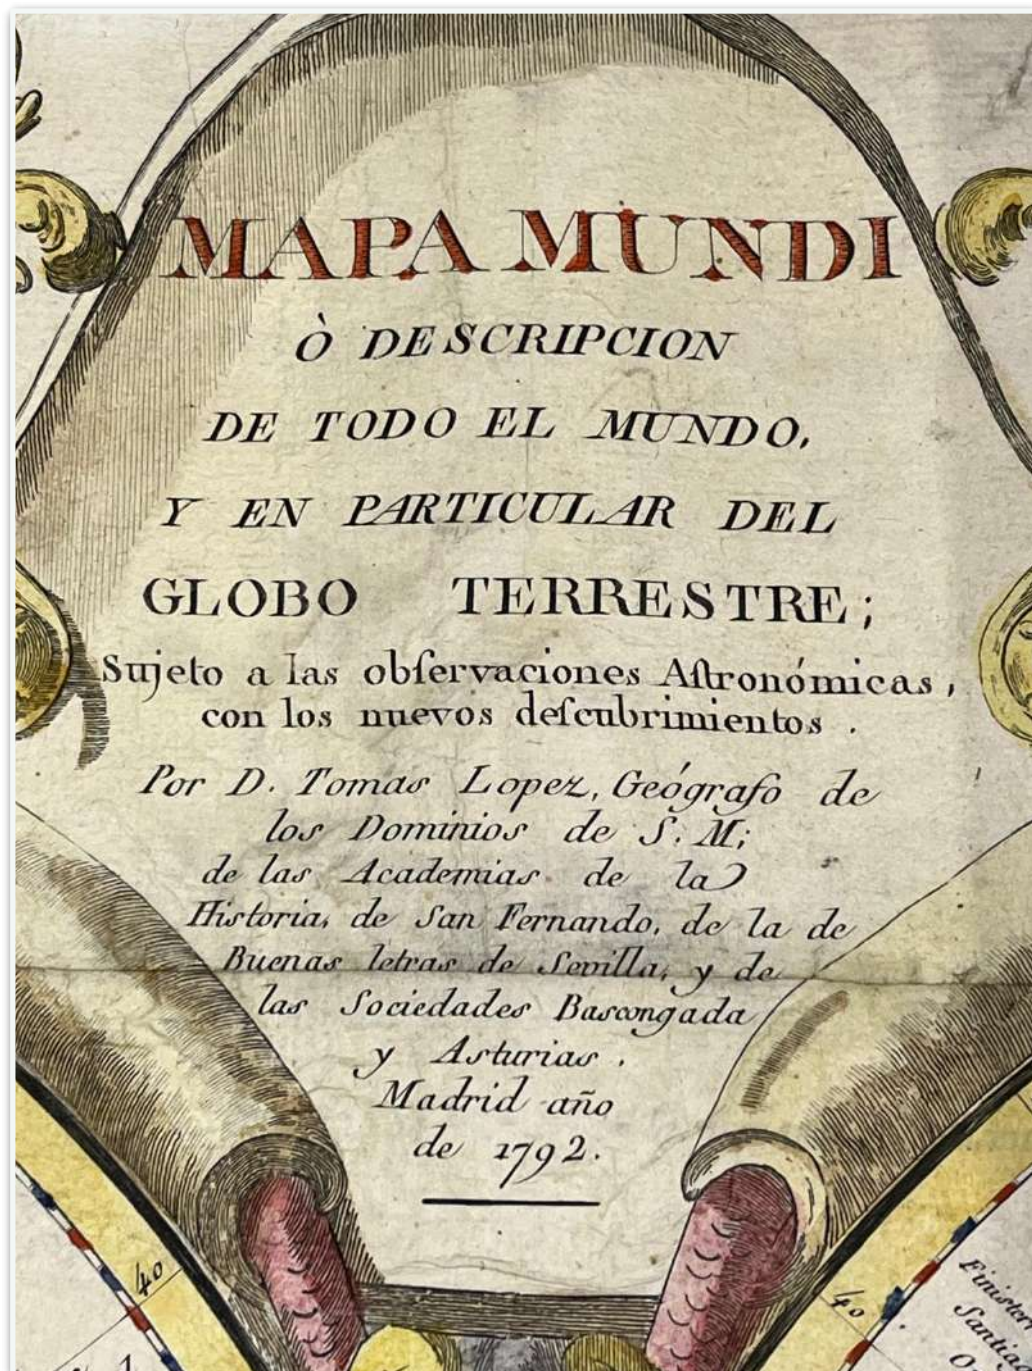 MAPA MUNDI
Ò DESCRIPCION
DE TODO EL MUNDO,
Y EN PARTICULAR DEL
GLOBO TERRESTRE;
Sujeto a las obſervaciones Aſtronómicas,
con los nuevos deſcubrimientos.
Por D. Tomas Lopez, Geógrafo de
los Dominios de S. M;
de las Academias de la
Historia, de San Fernando, de la de
Buenas letras de Sevilla, y de
las Sociedades Bascongada
y Asturias.
Madrid año
de 1792.
40
40
Santia